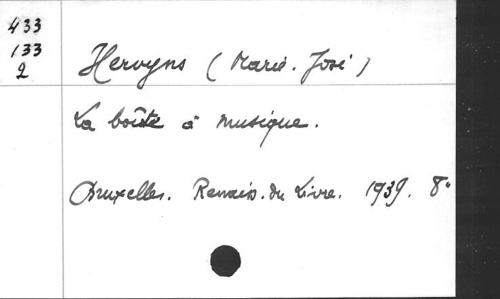 433
133
2
Hervyns (Marie-José)
La boîte à musique.
Bruxelles. Renais. du Livre. 1939. 8°